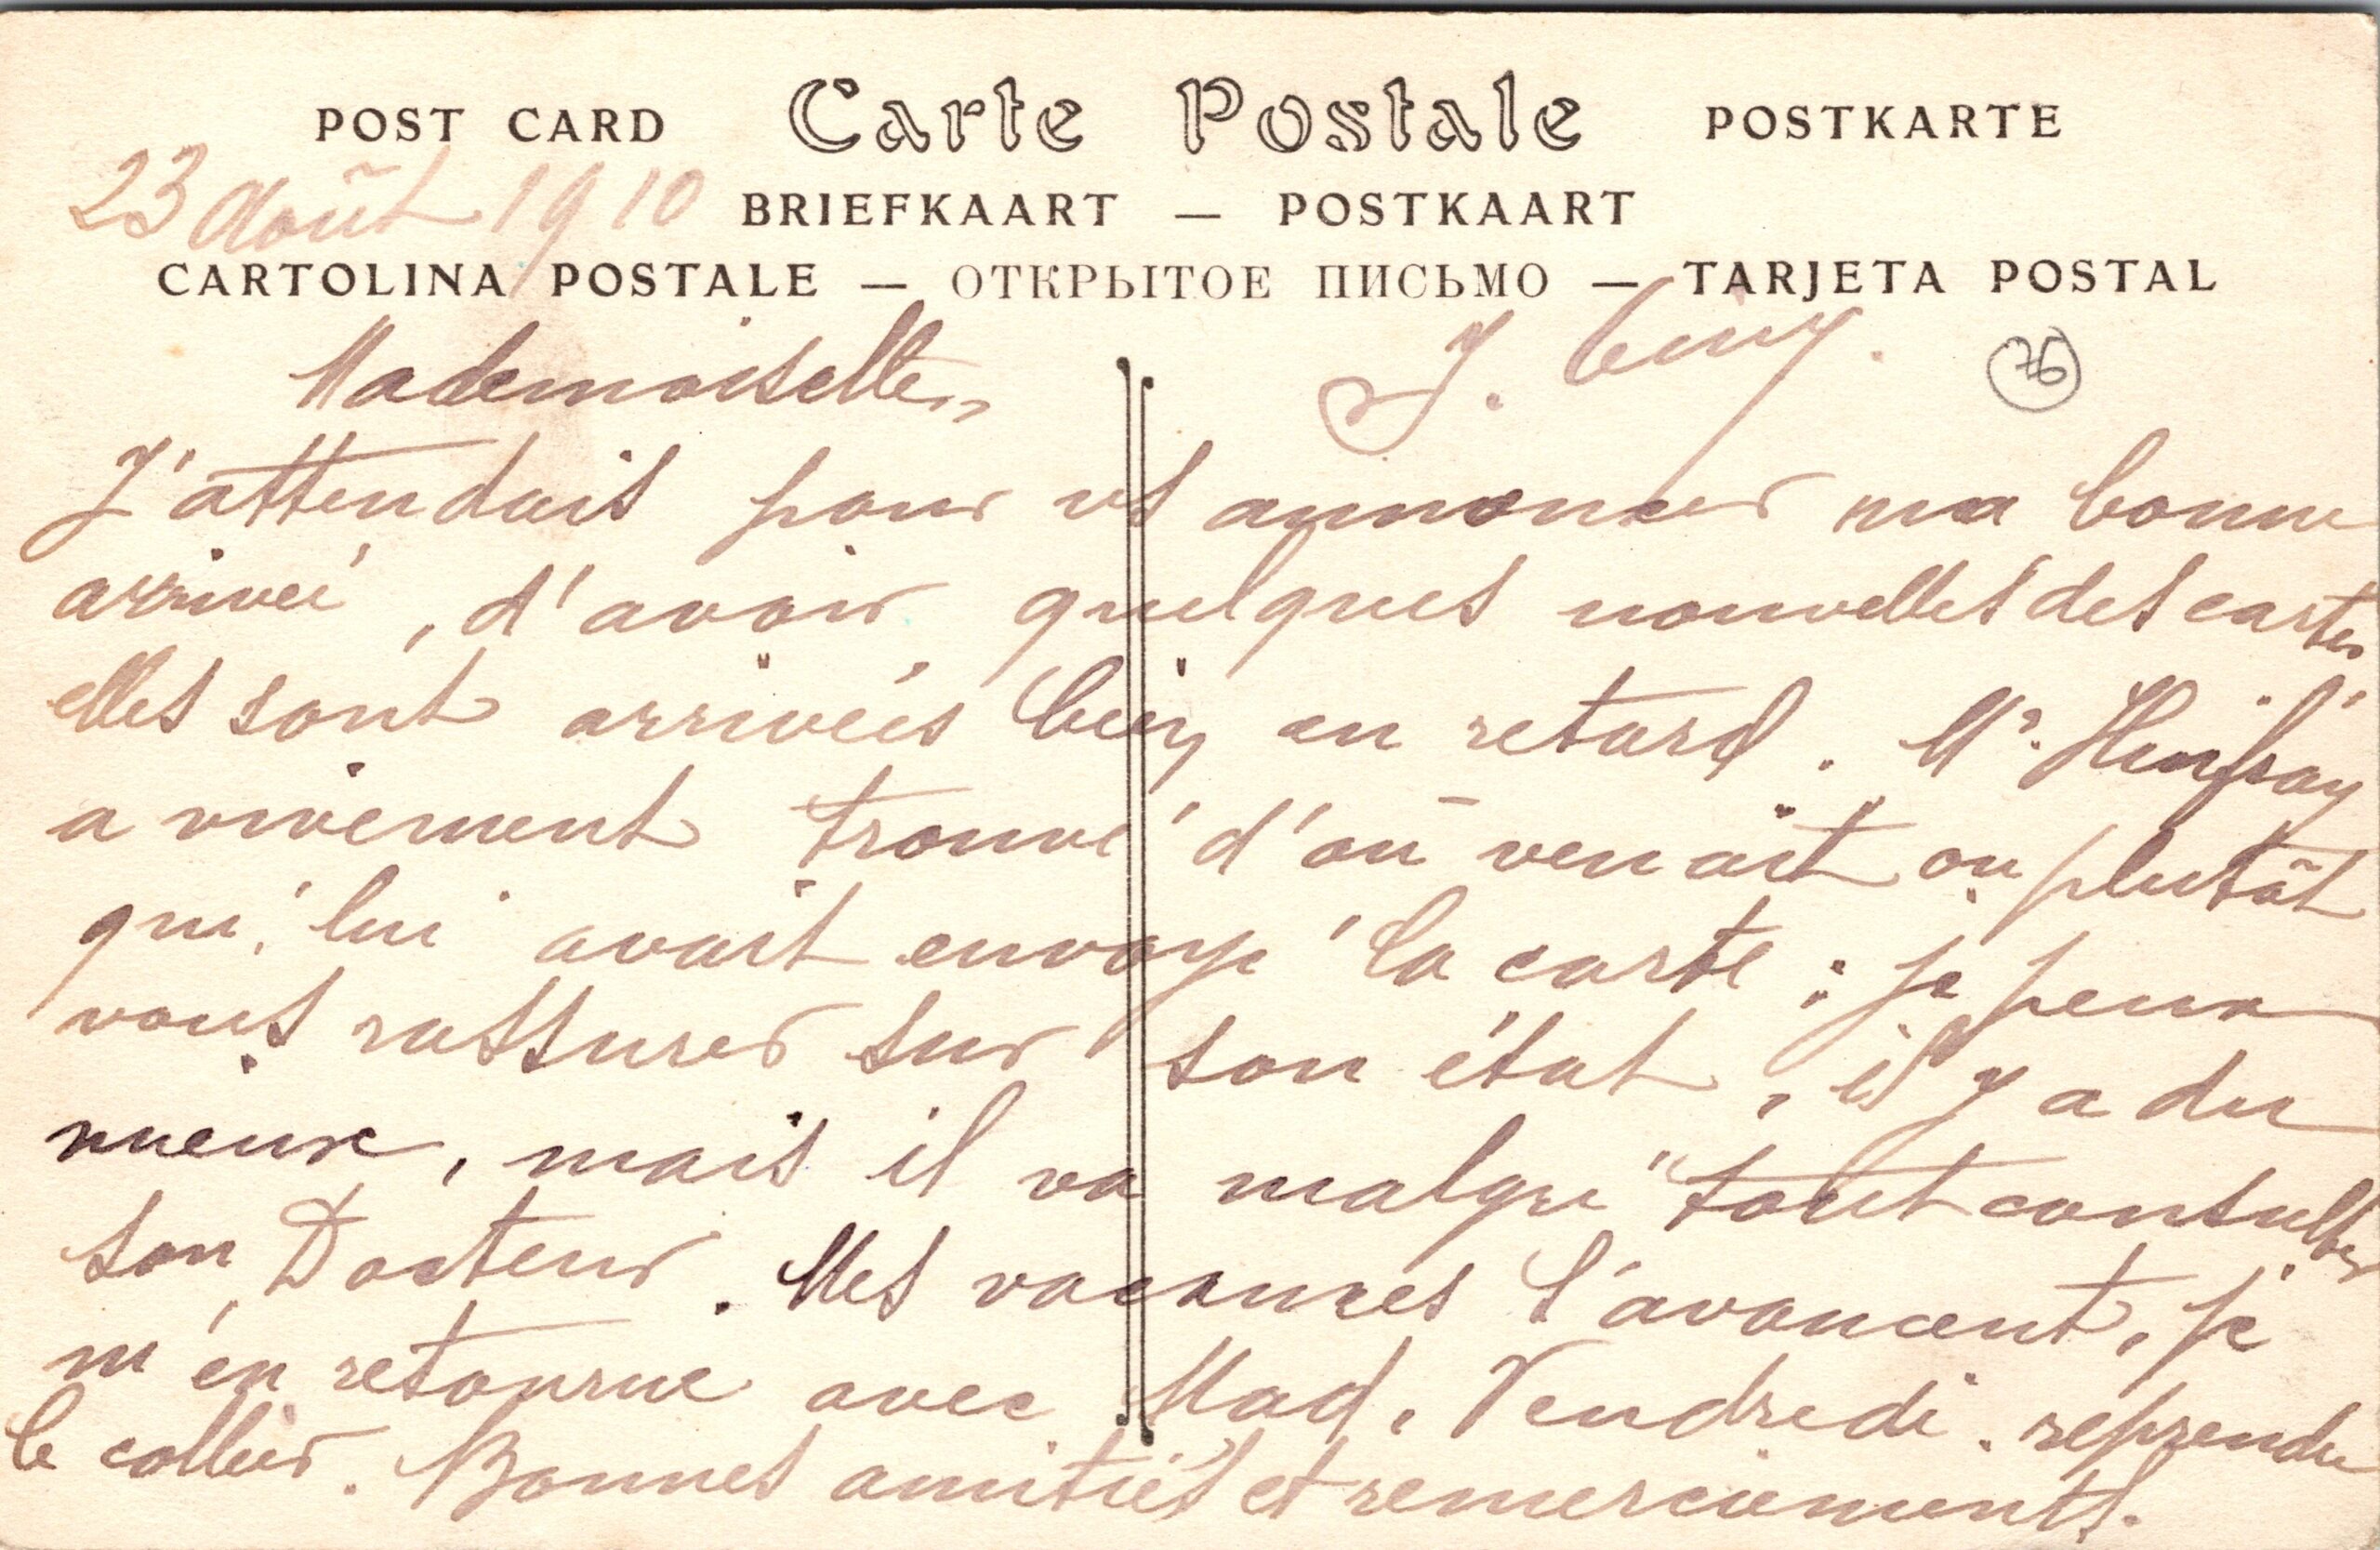 POST CARD Carte Postale POSTKARTE
23 Août 1910 BRIEFKAART — POSTKAART
CARTOLINA POSTALE — ОТКРЫТОЕ ПИСЬМО — TARJETA POSTAL
Mademoiselle,
J.
76
J'attendais pour vs annoncer ma bonne
arrivée, d'avoir quelques nouvelles des cartes
elles sont arrivées bien en retard. Mr.
a vivement trouvé d'où venait ou plutôt
qui lui avait envoyé la carte ; je peux
vous rassurer sur son état, il y a du
mieux, mais il va malgré tout consulter
son Docteur. Mes vacances s'avancent, je
m'en retourne avec Mad. Vendredi. reprendre
le collier. Bonnes amitiés et remerciements.